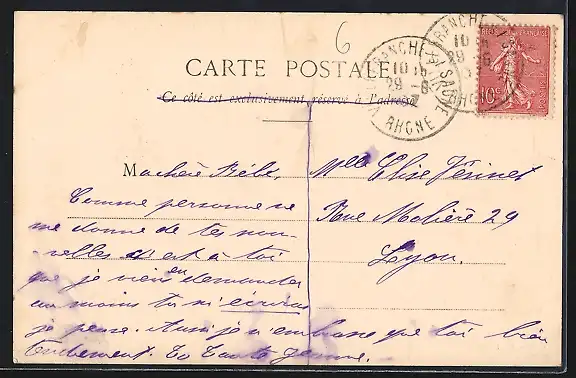 6
CARTE POSTALE
Ce côté est exclusivement réservé à l'adresse
VILLEFRANCHE-S-SAONE
10
29 -6
RHONE
FRANCHE
10
29
RHO
FRANÇAISE
10c
Ma chère Bébé,
Comme personne ne
me donne de tes nou-
-velles et à toi
que je viens en demander
au moins tu m'écriras
je pense. Aussi je n'embrasse que toi bien
tendrement. Ta Tante Jeanne.
Mlle Elise
Rue Molière 29
Lyon.